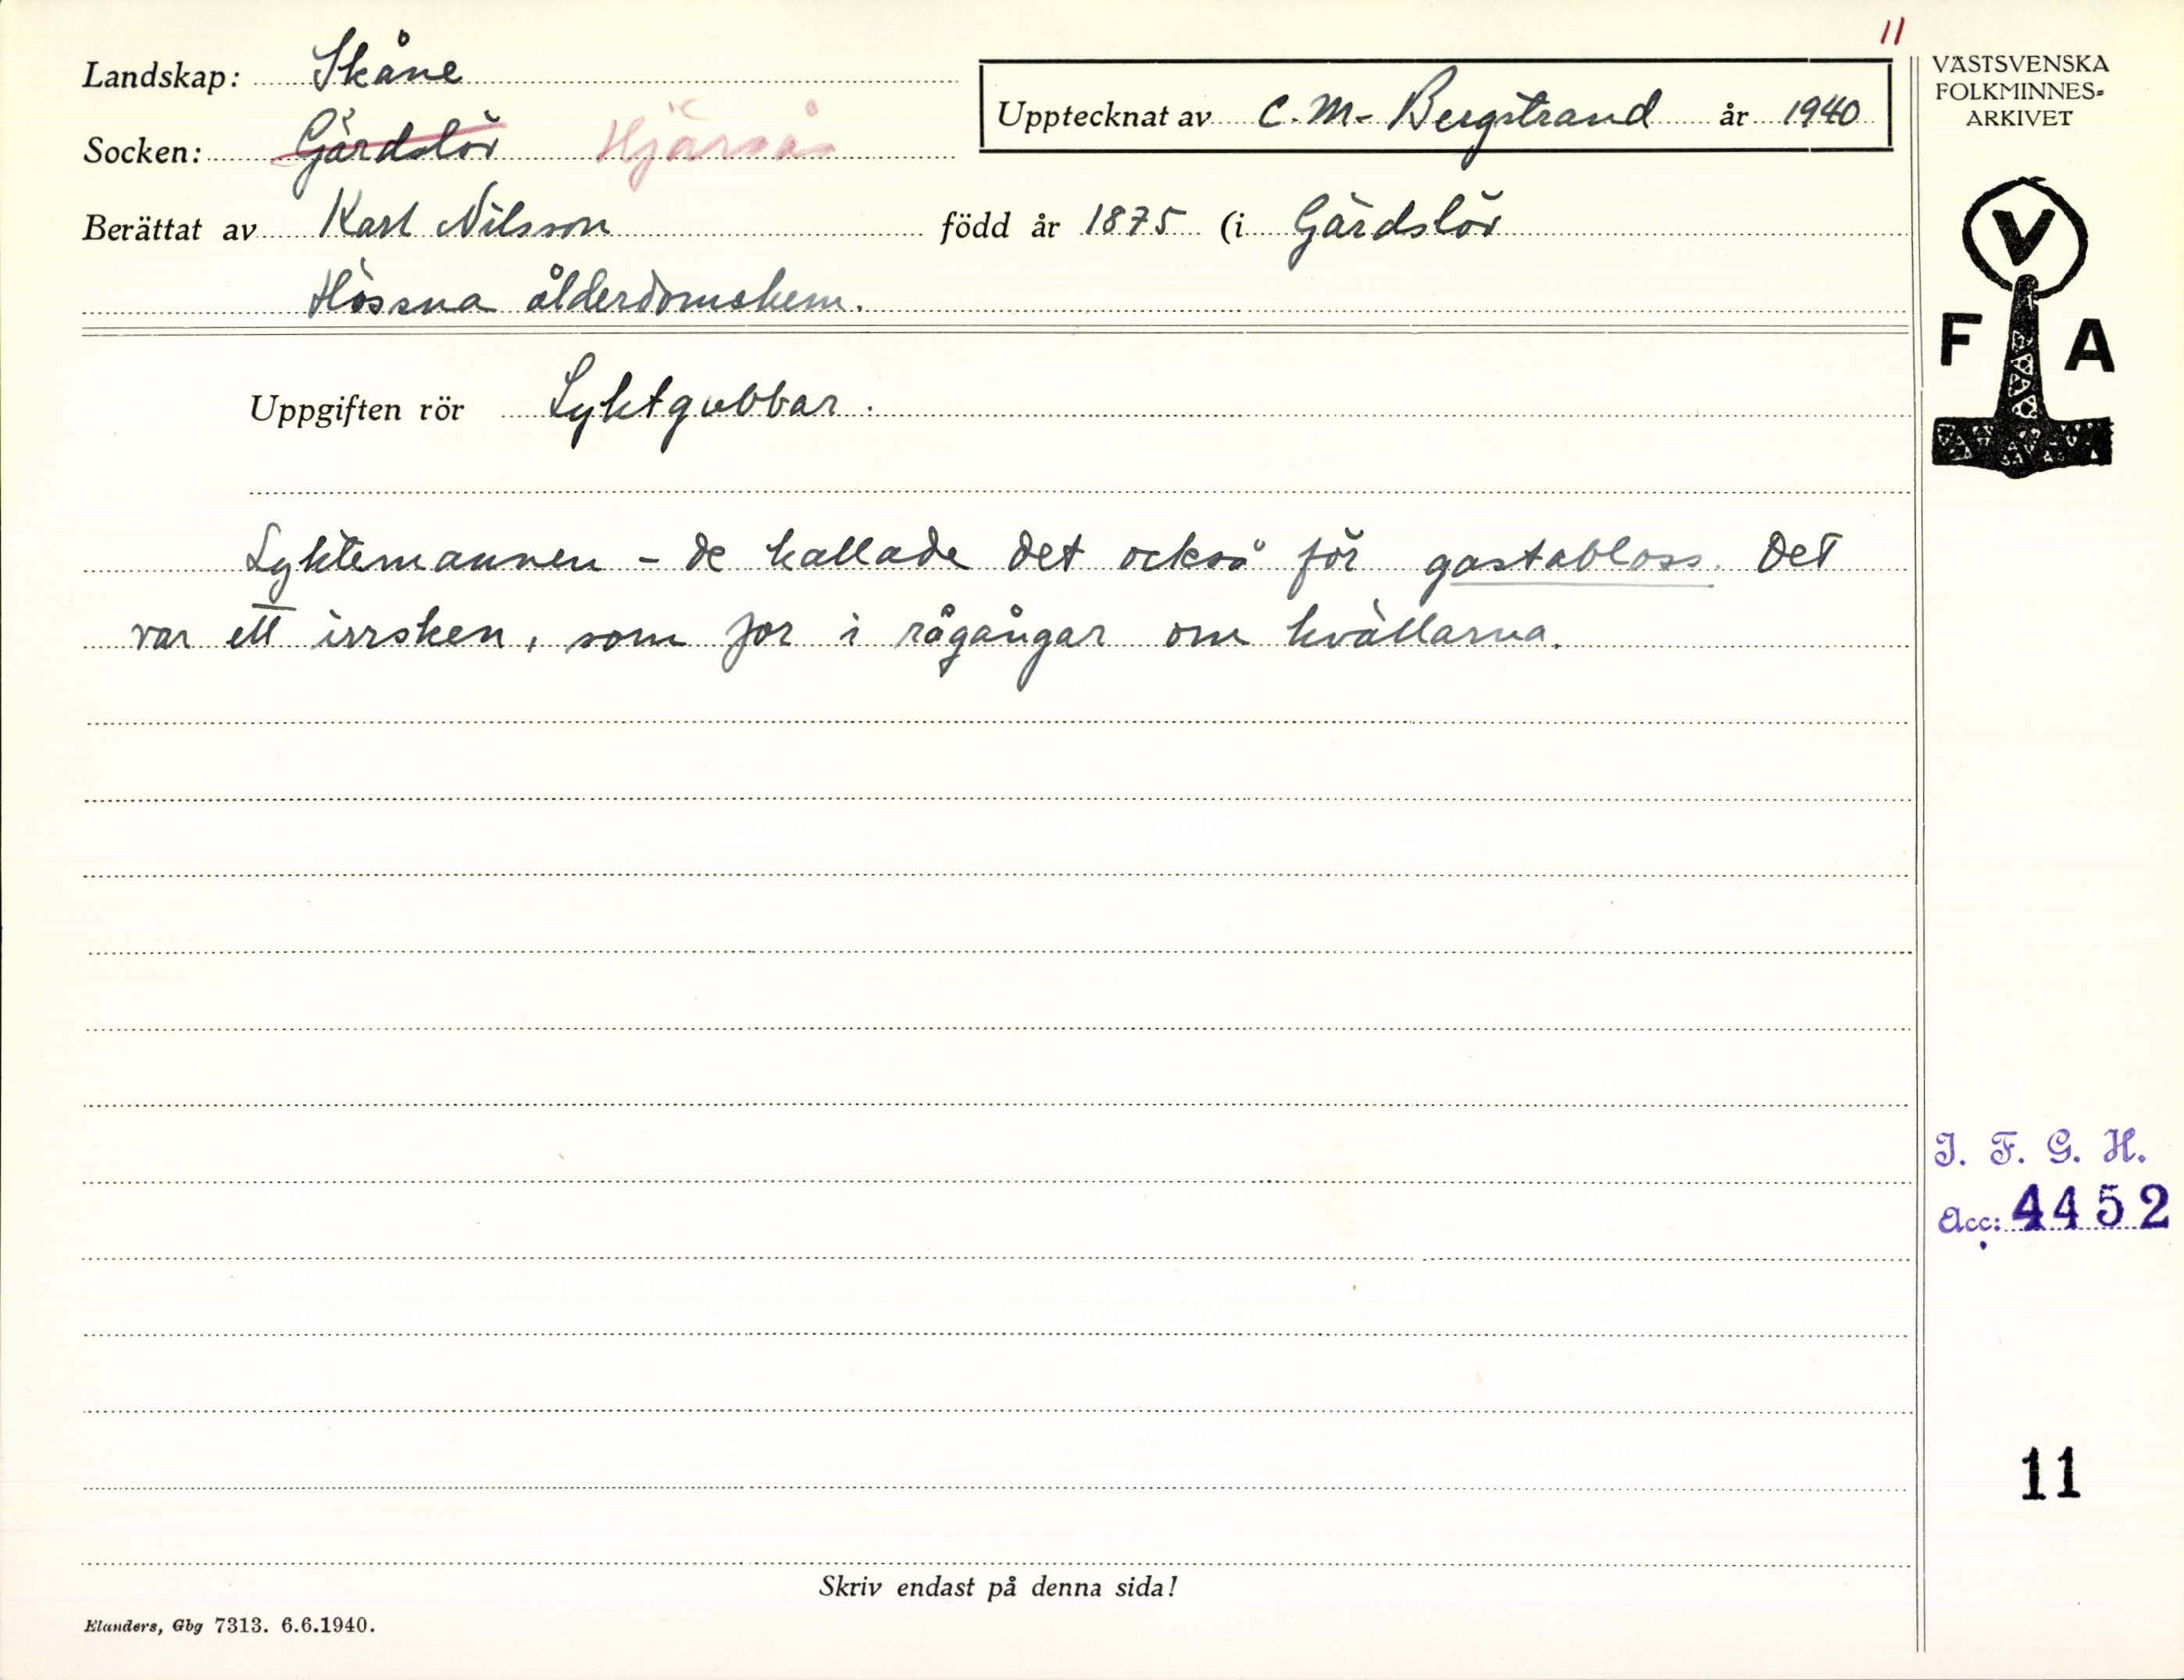 11
Landskap: Skåne
Socken: Gärdslöv Hjärsås
Upptecknat av C. M. Bergstrand år 1940
Berättat av Karl Nilsson född år 1875 (i Gärdslöv
Hössna ålderdomshem.
Uppgiften rör Lyktgubbar.
Lyktemannen - de kallade det också för gastabloss. Det
var ett irrsken, som for i rågångar om kvällarna.
Skriv endast på denna sida!
Elanders, Gbg 7313. 6.6.1940.
VÄSTSVENSKA
FOLKMINNES-
ARKIVET
V
F A
I. F. G. H.
Acc: 4452
11